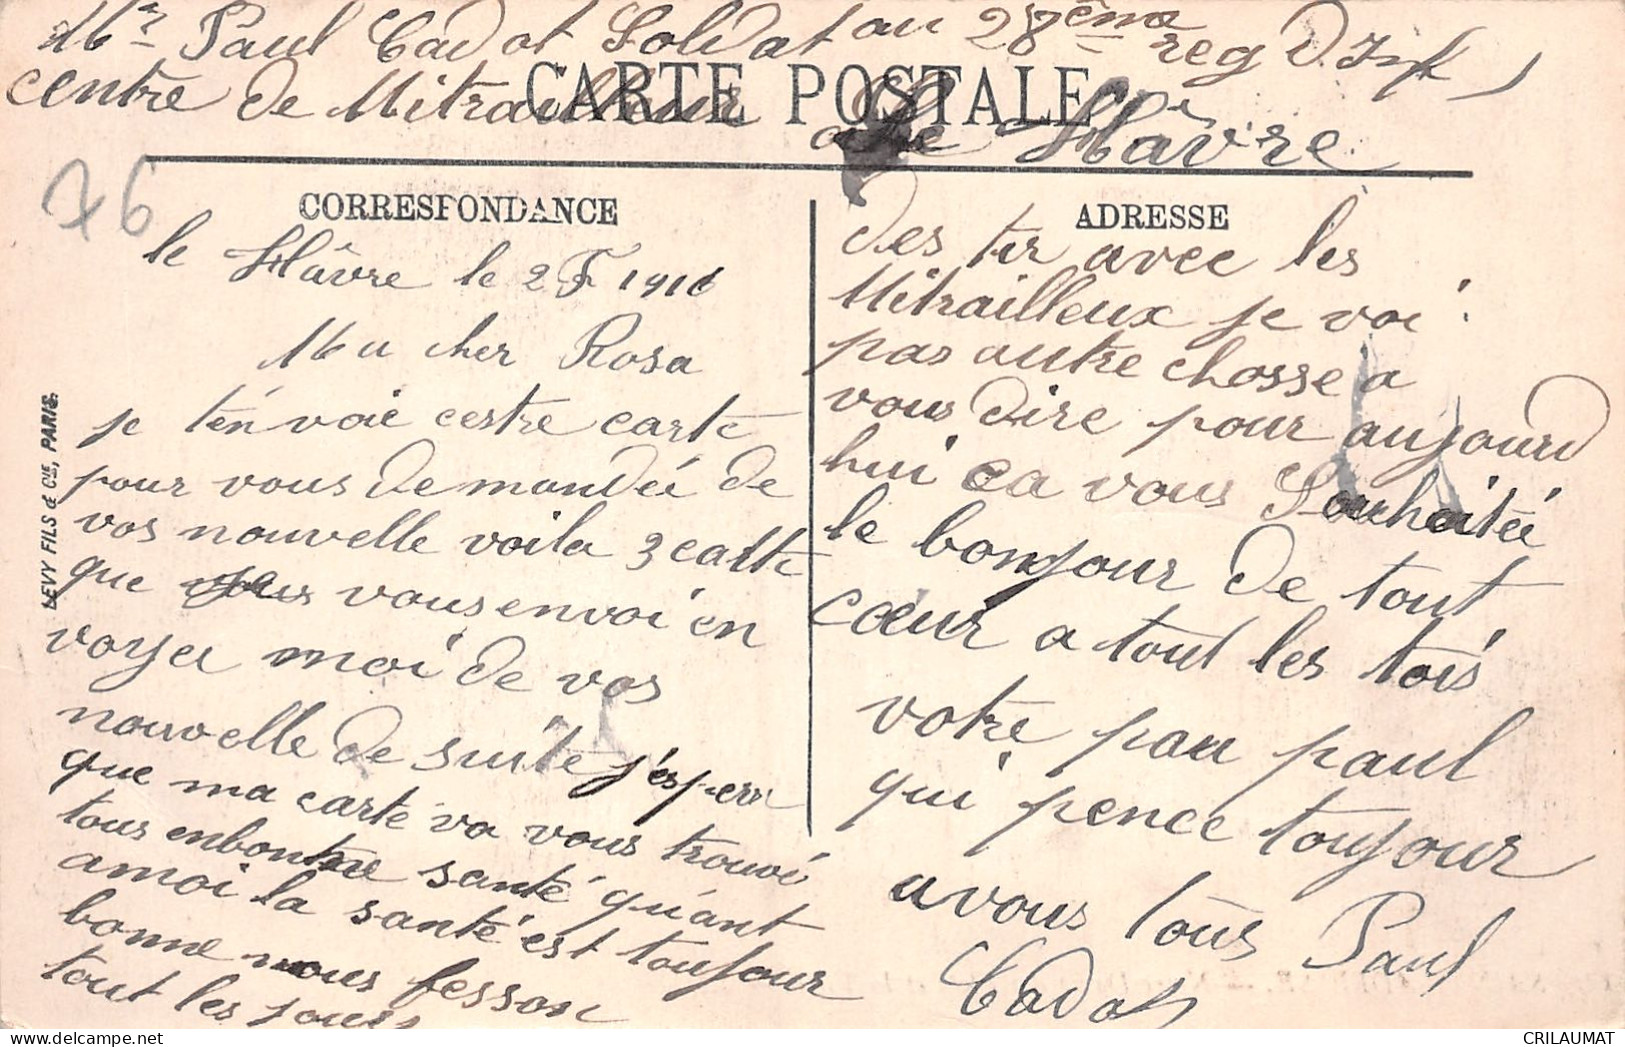 Mr Paul Cadot Soldat au 28ème reg D.Inf
centre de Mitrailleur a le Hâvre
CARTE POSTALE
76
CORRESPONDANCE
le Hâvre le 2 F 1916
Ma cher Rosa
je tén voie cestre carte
pour vous demandéé de
vos nouvelle voila 3 carte
que vous envoi en
voyer moi de vos
nouvelle de suite j'esperr
que ma carte va vous trouvé
tous enbontre santé qu'ant
amoi la santé est toujour
bonne nous fesson
tout les jours
ADRESSE
des tir avec les
Mitrailleux je voi
pas autre chosse a
vous dire pour aujourd
hui ca vous Souhaitéé
le bonjour de tout
cœur a tout les tois
votre pau paul
qui pence toujour
avous tous Paul
Cadot
LEVY FILS & CIE, PARIS.
CRILAUMAT